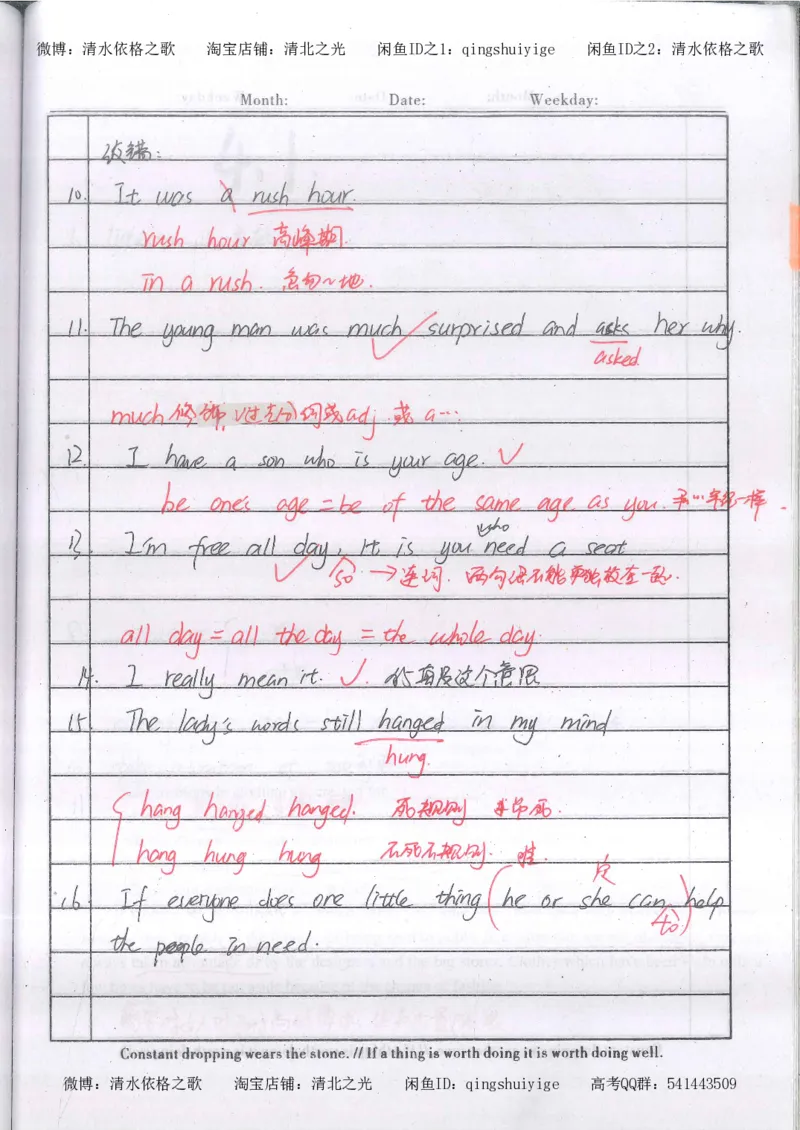 微博：清水依格之歌 淘宝店铺：清北之光 闲鱼ID之1：qingshuiyige 闲鱼ID之2：清水依格之歌
Month: Date: Weekday:
改错：
10. It was a rush hour.
rush hour 高峰期.
in a rush. 急匆~地.
11. The young man was much surprised and asks her why.
asked.
much 修饰 v过去分词或adj 或 a…
12. I have a son who is your age.
be one's age = be of the same age as you. 和…年纪一样.
who
13. I'm free all day, it is you need a seat
so → 连词. 两句话不能单独放在一起.
all day = all the day = the whole day.
14. I really mean it. 我真是这个意思
15. The lady's words still hanged in my mind
hung.
hang hanged hanged. 死规则 吊死.
hang hung hung 不死不规则. 挂.
16. If everyone does one little thing (he or she can) help
to
the people in need.
Constant dropping wears the stone. // If a thing is worth doing it is worth doing well.
微博：清水依格之歌 淘宝店铺：清北之光 闲鱼ID：qingshuiyige 高考QQ群：541443509